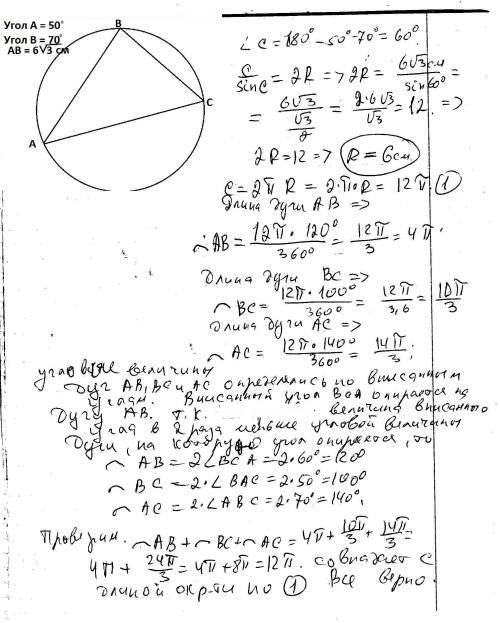 Угол А = 50°
Угол В = 70°
АВ = 6√3 см
В
С
А
∠C = 180° - 50° - 70° = 60°.
C/sinC = 2R => 2R = 6√3 см/sin60° =
= 6√3/(√3/2) = 2·6√3/√3 = 12 =>
2R = 12 => R = 6см
C = 2πR = 2·π·R = 12π ①
Длина дуги АВ =>
◡AB = 12π·120°/360° = 12π/3 = 4π.
Длина дуги ВС =>
◡BC = 12π·100°/360° = 12π/3,6 = 10π/3
Длина дуги АС =>
◡AC = 12π·140°/360° = 14π/3;
угловые величины
Дуг АВ, ВС и АС определялись по вписанным
углам. Вписанный угол опирается на
Дугу АВ. Т.К. величина вписанного
угла в 2 раза меньше угловой величины
Дуги, на которую угол опирается, то
◡AB = 2∠BCA = 2·60° = 120°
◡BC = 2·∠BAC = 2·50° = 100°
◡AC = 2·∠ABC = 2·70° = 140°.
Проверим. ◡AB + ◡BC + ◡AC = 4π + 10π/3 + 14π/3 =
4π + 24π/3 = 4π + 8π = 12π. совпадает с
длиной окр-ти по ① Все верно.